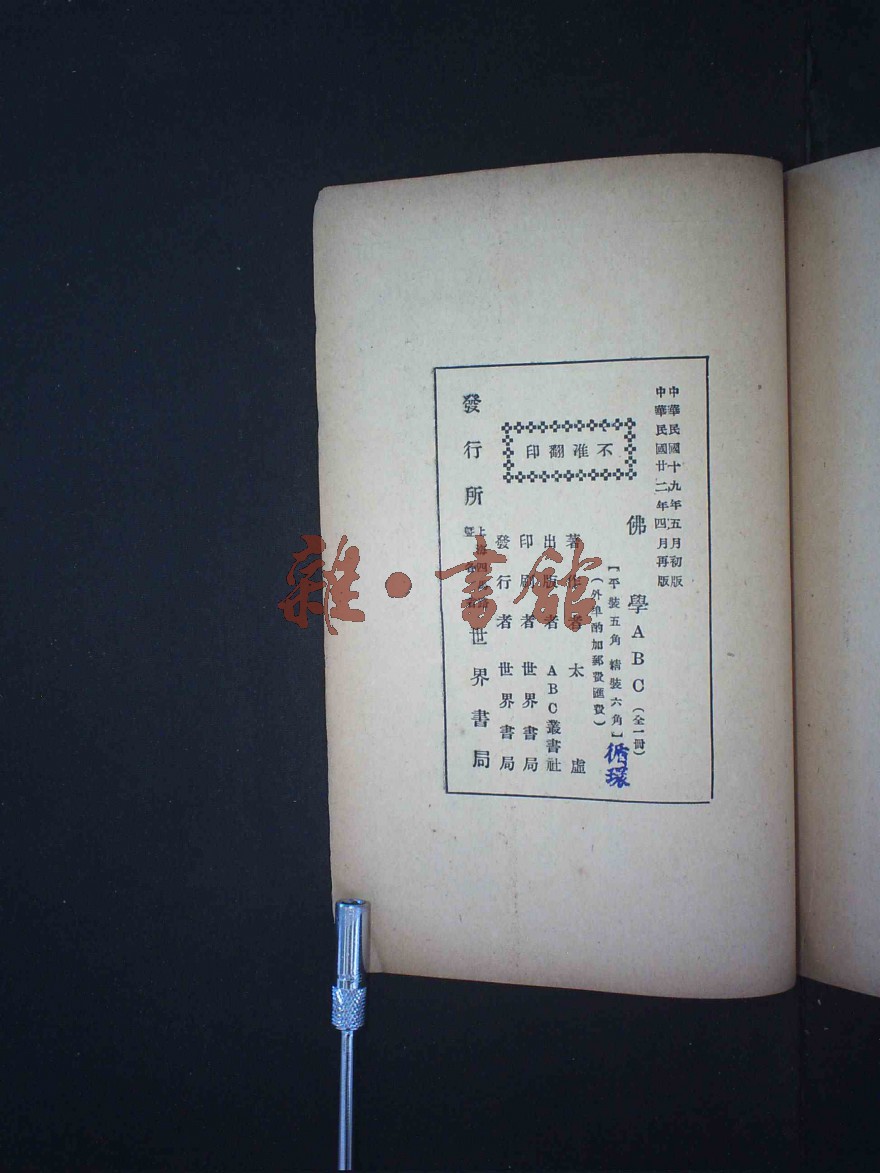 中華民國十九年五月初版
中華民國廿二年四月再版
佛學ABC(全一冊)
【平裝五角 精裝六角】
(外埠酌加郵費匯費)
循環
不准翻印
著作者 太虛
出版者 ABC叢書社
印刷者 世界書局
發行者 世界書局
發行所 上海四馬路 世界書局
雜·書館